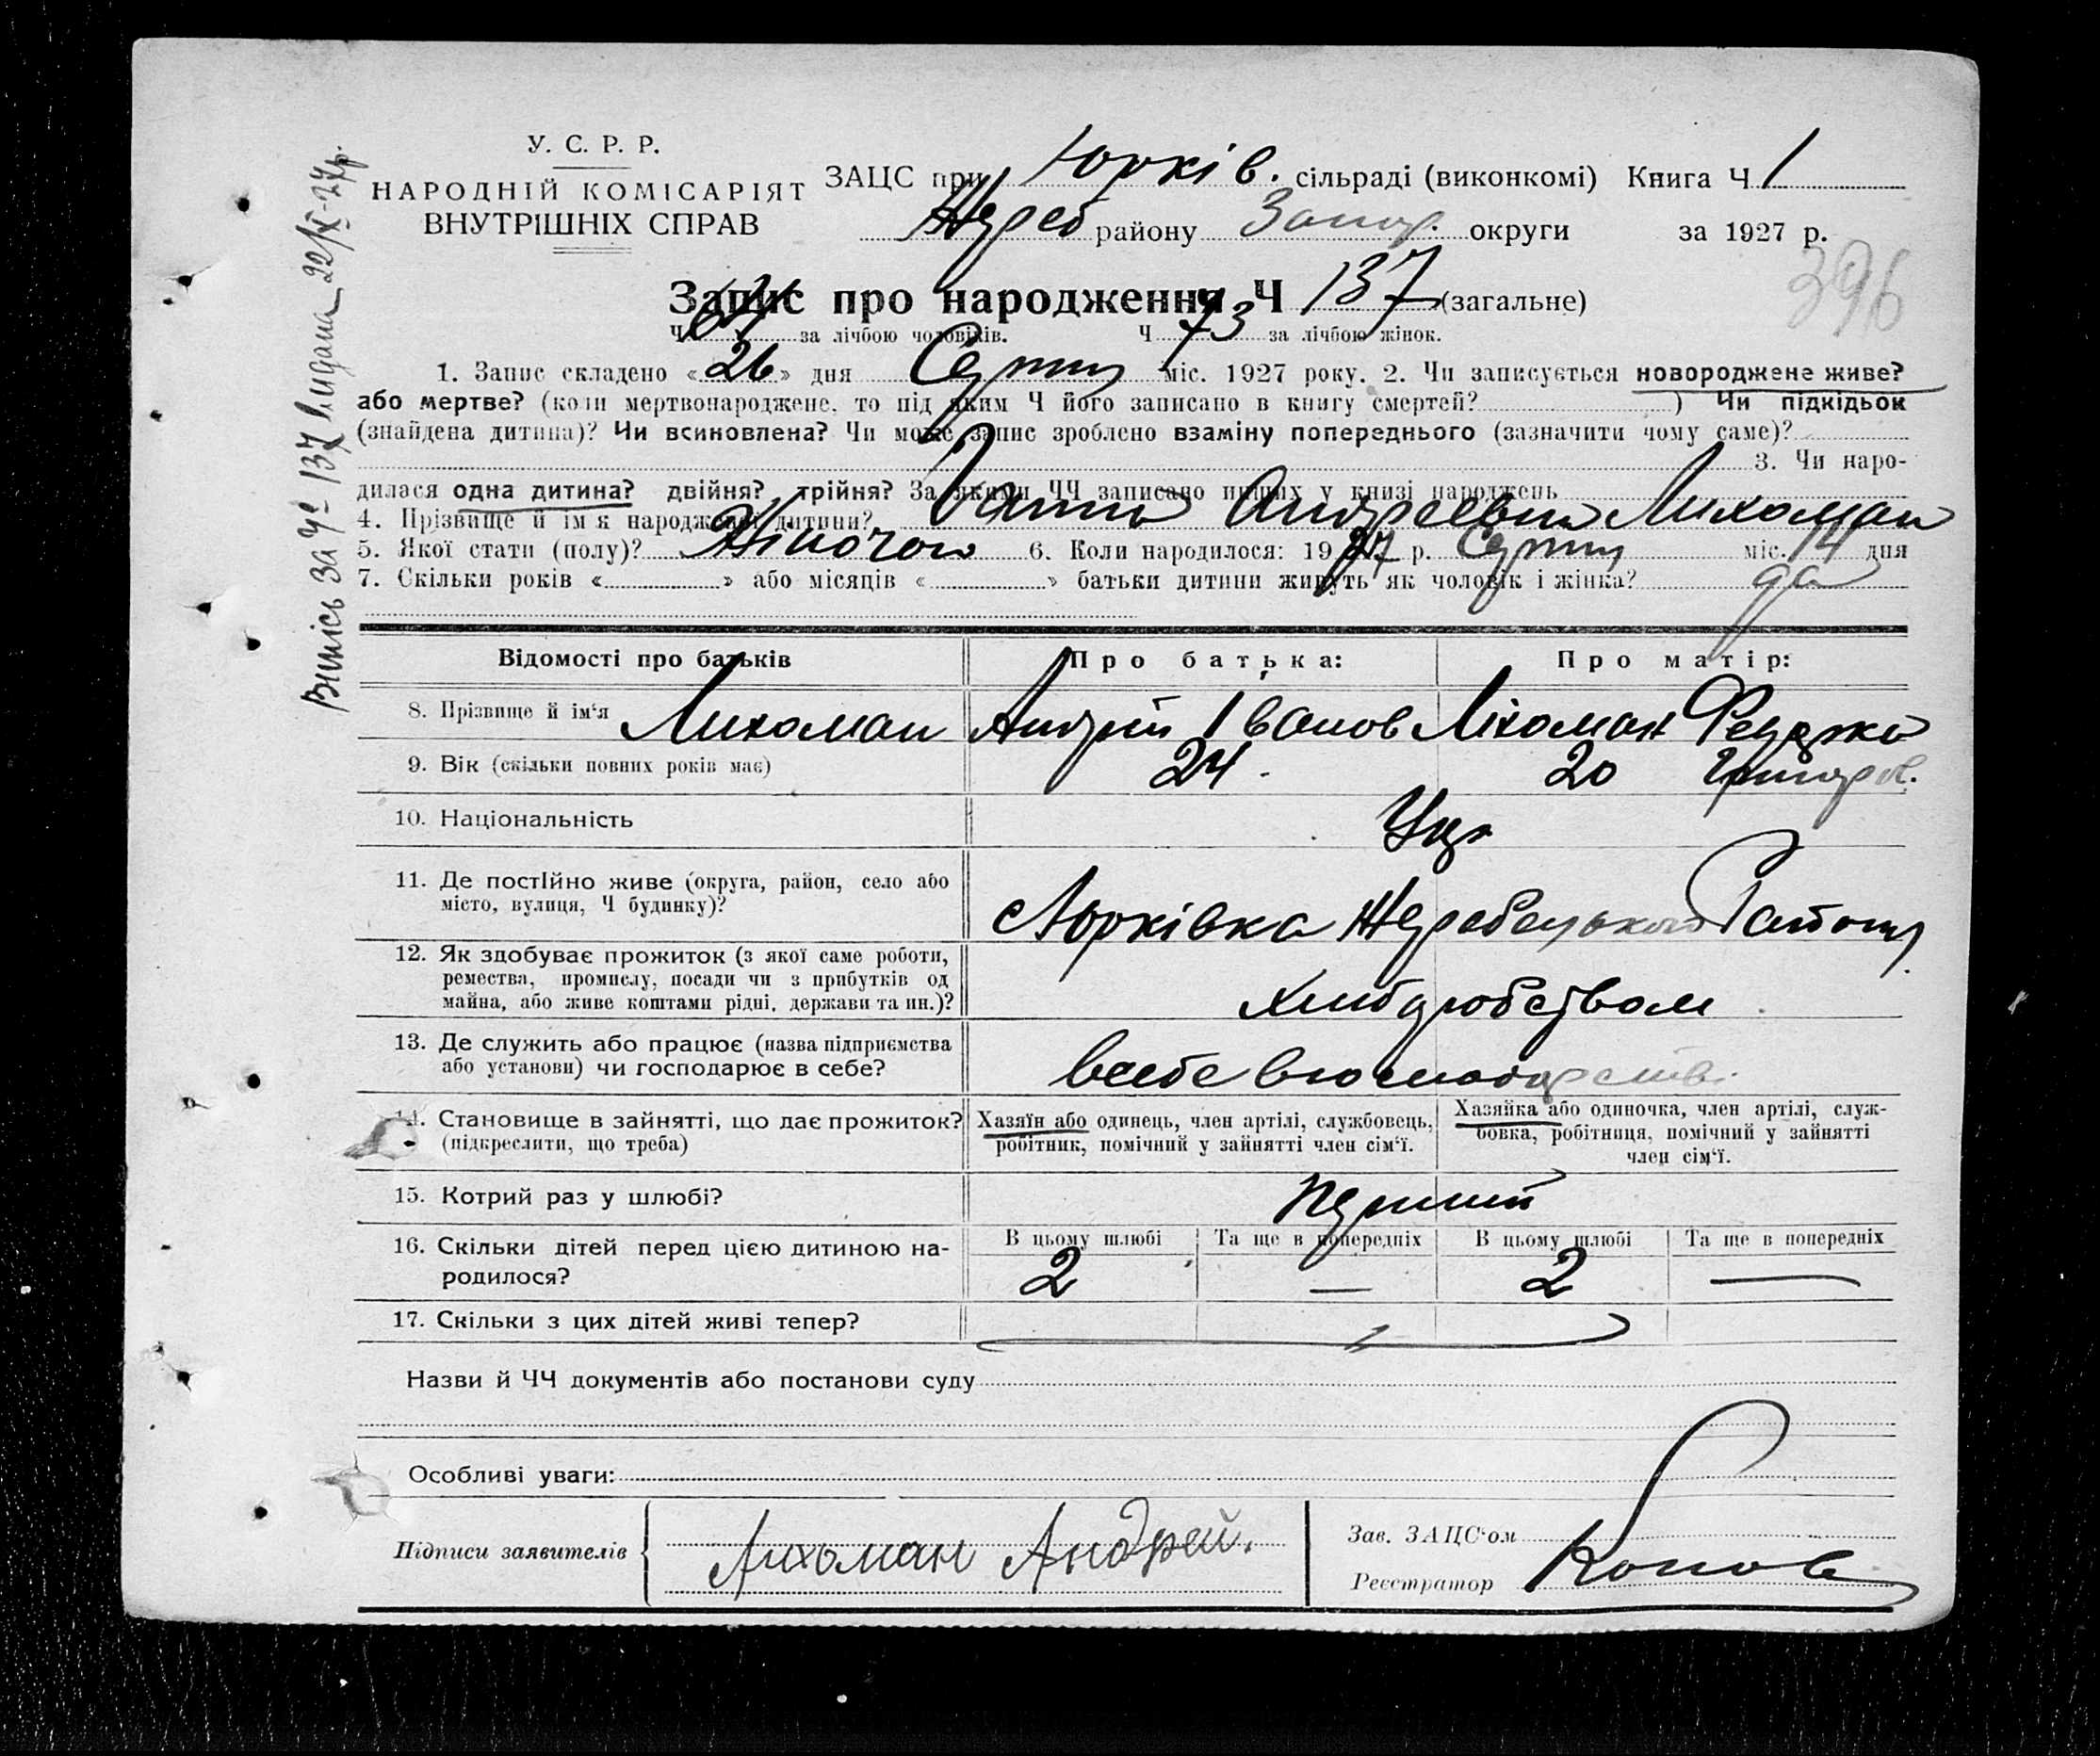 У. С. Р. Р.
НАРОДНІЙ КОМІСАРІЯТ
ВНУТРІШНІХ СПРАВ
ЗАЦС при Юрків. сільраді (виконкомі) Книга Ч 1
Жереб району Запор. округи за 1927 р.
396
Запис про народження Ч 137 (загальне)
Ч 64 за лічбою чоловіків. Ч 73 за лічбою жінок.
1. Запис складено «26» дня Серпня міс. 1927 року. 2. Чи записується новороджене живе?
або мертве? (коли мертвонароджене, то під яким Ч його записано в книгу смертей? ) Чи підкідьок
(знайдена дитина)? Чи всиновлена? Чи може запис зроблено взаміну попереднього (зазначити чому саме)?
3. Чи наро-
дилася одна дитина? двійня? трійня? За якими ЧЧ записано інших у книзі народжень
4. Прізвище й ім'я народженої дитини? Ганна Андреевна Лихоман
5. Якої стати (полу)? Жіночої 6. Коли народилося: 1927 р. Серпня міс. 14 дня
7. Скільки років « » або місяців « » батьки дитини живуть як чоловік і жінка? да
Випись за Ч 137 видана 22/X-27р.
Відомості про батьків Про батька: Про матір:
8. Прізвище й ім'я Лихоман Андрій Іванов Ліхоман Федорка
9. Вік (скільки повних років має) 24. 20 Григоров.
10. Національність Укр
11. Де постійно живе (округа, район, село або
місто, вулиця, Ч будинку)?
с Юрківка Жеребецького Району
12. Як здобуває прожиток (з якої саме роботи,
ремества, промислу, посади чи з прибутків од
майна, або живе коштами рідні, держави та ин.)?
хлиборобством
13. Де служить або працює (назва підприємства
або установи) чи господарює в себе?
всебе вгосподарстві
14. Становище в зайнятті, що дає прожиток?
(підкреслити, що треба)
Хазяїн або одинець, член артілі, службовець,
робітник, помічний у зайнятті член сім'ї.
Хазяйка або одиночка, член артілі, служ-
бовка, робітниця, помічний у зайнятті
член сім'ї.
15. Котрий раз у шлюбі? перший
16. Скільки дітей перед цією дитиною на-
родилося?
В цьому шлюбі Та ще в попередніх В цьому шлюбі Та ще в попередніх
2 — 2 —
17. Скільки з цих дітей живі тепер?
Назви й ЧЧ документів або постанови суду
Особливі уваги:
Підписи заявителів Лихоман Андрей.
Зав. ЗАЦС'ом
Реєстратор